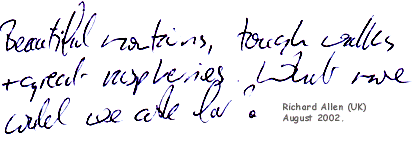 Beautiful mountains, tough walks
+ great raspberries. What more
could we ask for?
Richard Allen (UK)
August 2002.